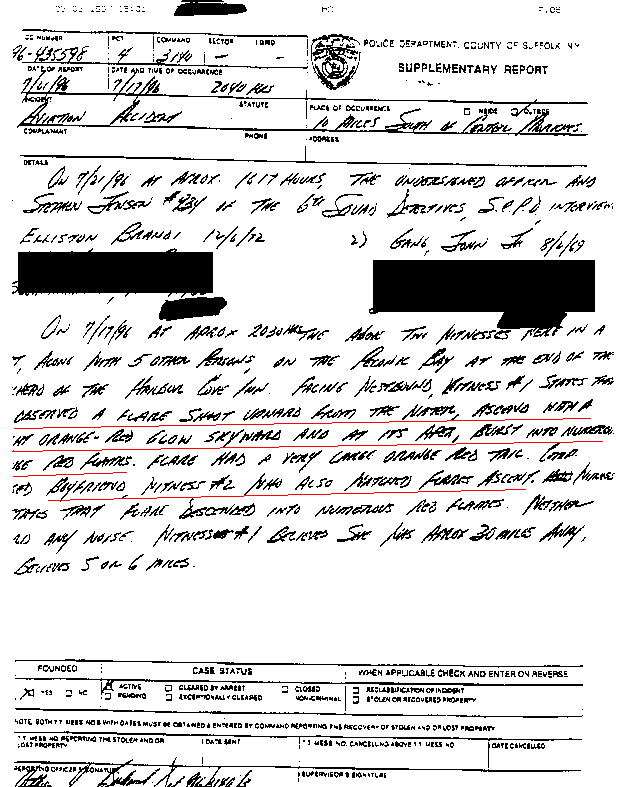 CC NUMBER PCT COMMAND SECTOR
96-435598 4 3140 — —
POLICE DEPARTMENT, COUNTY OF SUFFOLK, NY
SUPPLEMENTARY REPORT
DATE OF REPORT DATE AND TIME OF OCCURRENCE
7/21/96 7/17/96 2040 HRS
INCIDENT STATUTE PLACE OF OCCURRENCE INSIDE OUTSIDE
AVIATION ACCIDENT 10 MILES SOUTH OF
COMPLAINANT PHONE ADDRESS
DETAILS
ON 7/21/96 AT APROX. 1617 HOURS, THE UNDERSIGNED OFFICER AND
STEPHEN JENSEN OF THE 6TH SQUAD DETECTIVES, S.C.P.D. INTERVIEW
ELLISTON BRANDI 12/6/72 2) GANG, JOHN JR 8/2/69
ON 7/17/96 AT APROX 2030 HRS THE ABOVE TWO WITNESSES WERE IN A
T, ALONG WITH 5 OTHER PERSONS, ON THE PECONIC BAY AT THE END OF THE
HEAD OF THE HARBOUR COVE INN. FACING WESTBOUND, WITNESS #1 STATES THA
OBSERVED A FLARE SHOOT UPWARD FROM THE WATER, ASCEND WITH A
HT ORANGE-RED GLOW SKYWARD AND AT ITS APEX, BURST INTO NUMEROU
GE RED FLAMES. FLARE HAD A VERY LARGE ORANGE RED TAIL.
BOYFRIEND, WITNESS #2 WHO ALSO WATCHED FLARES ASCENT.
TATES THAT FLARE DESCENDED INTO NUMEROUS RED FLAMES. NEITHER
RD ANY NOISE. WITNESS #1 BELIEVES SHE WAS APROX 30 MILES AWAY,
BELIEVES 5 OR 6 MILES.
FOUNDED CASE STATUS WHEN APPLICABLE CHECK AND ENTER ON REVERSE
YES NO ACTIVE CLEARED BY ARREST CLOSED RECLASSIFICATION OF INCIDENT
PENDING EXCEPTIONALLY CLEARED NON-CRIMINAL STOLEN OR RECOVERED PROPERTY
NOTE: BOTH TT MESS NOS WITH DATES MUST BE OBTAINED & ENTERED BY COMMAND REPORTING THE RECOVERY OF STOLEN AND OR LOST PROPERTY
TT MESS NO REPORTING THE STOLEN AND OR DATE SENT TT MESS NO. CANCELLING ABOVE TT MESS NO DATE CANCELLED
LOST PROPERTY
REPORTING OFFICER'S SIGNATURE SUPERVISOR'S SIGNATURE